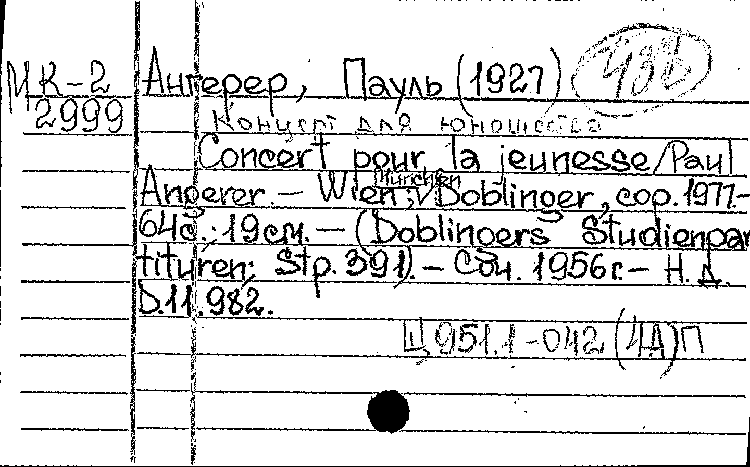 МК-2 Ангерер, Пауль (1927)
2999 Концерт для юношества
Concert pour la jeunesse/Paul
Angerer. — Wien; München Doblinger, cop. 1977.-
64с.; 19см. — (Doblingers Studienpar
tituren; Stp. 391). — Соч. 1956г. — Н.д.
D.11.982.
Ц 951.1-042 (4А)П